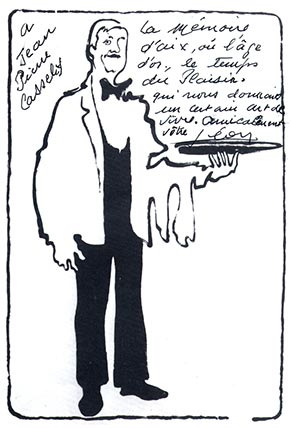 a
Jean
Pierre
Cassely
La Mémoire
d'aix, où l'âge
d'or, le temps
du Plaisir.
qui nous donnait
un certain art de
vivre. Amicalement
vôtre